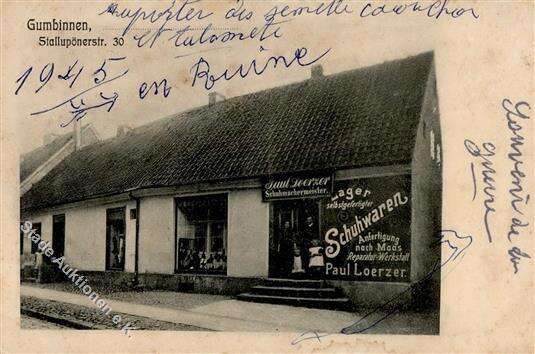 Gumbinnen,
Stallupönerstr. 30
supporter des semelle caoutchou
et talomete
1945
en Ruine
Souvenir de
guerre
Paul Loerzer
Schuhmachermeister.
Lager
selbstgefertigter
Schuhwaren
Anfertigung
nach Maaß
Reparatur-Werkstatt
Paul Loerzer.
Stade Auktionen.de